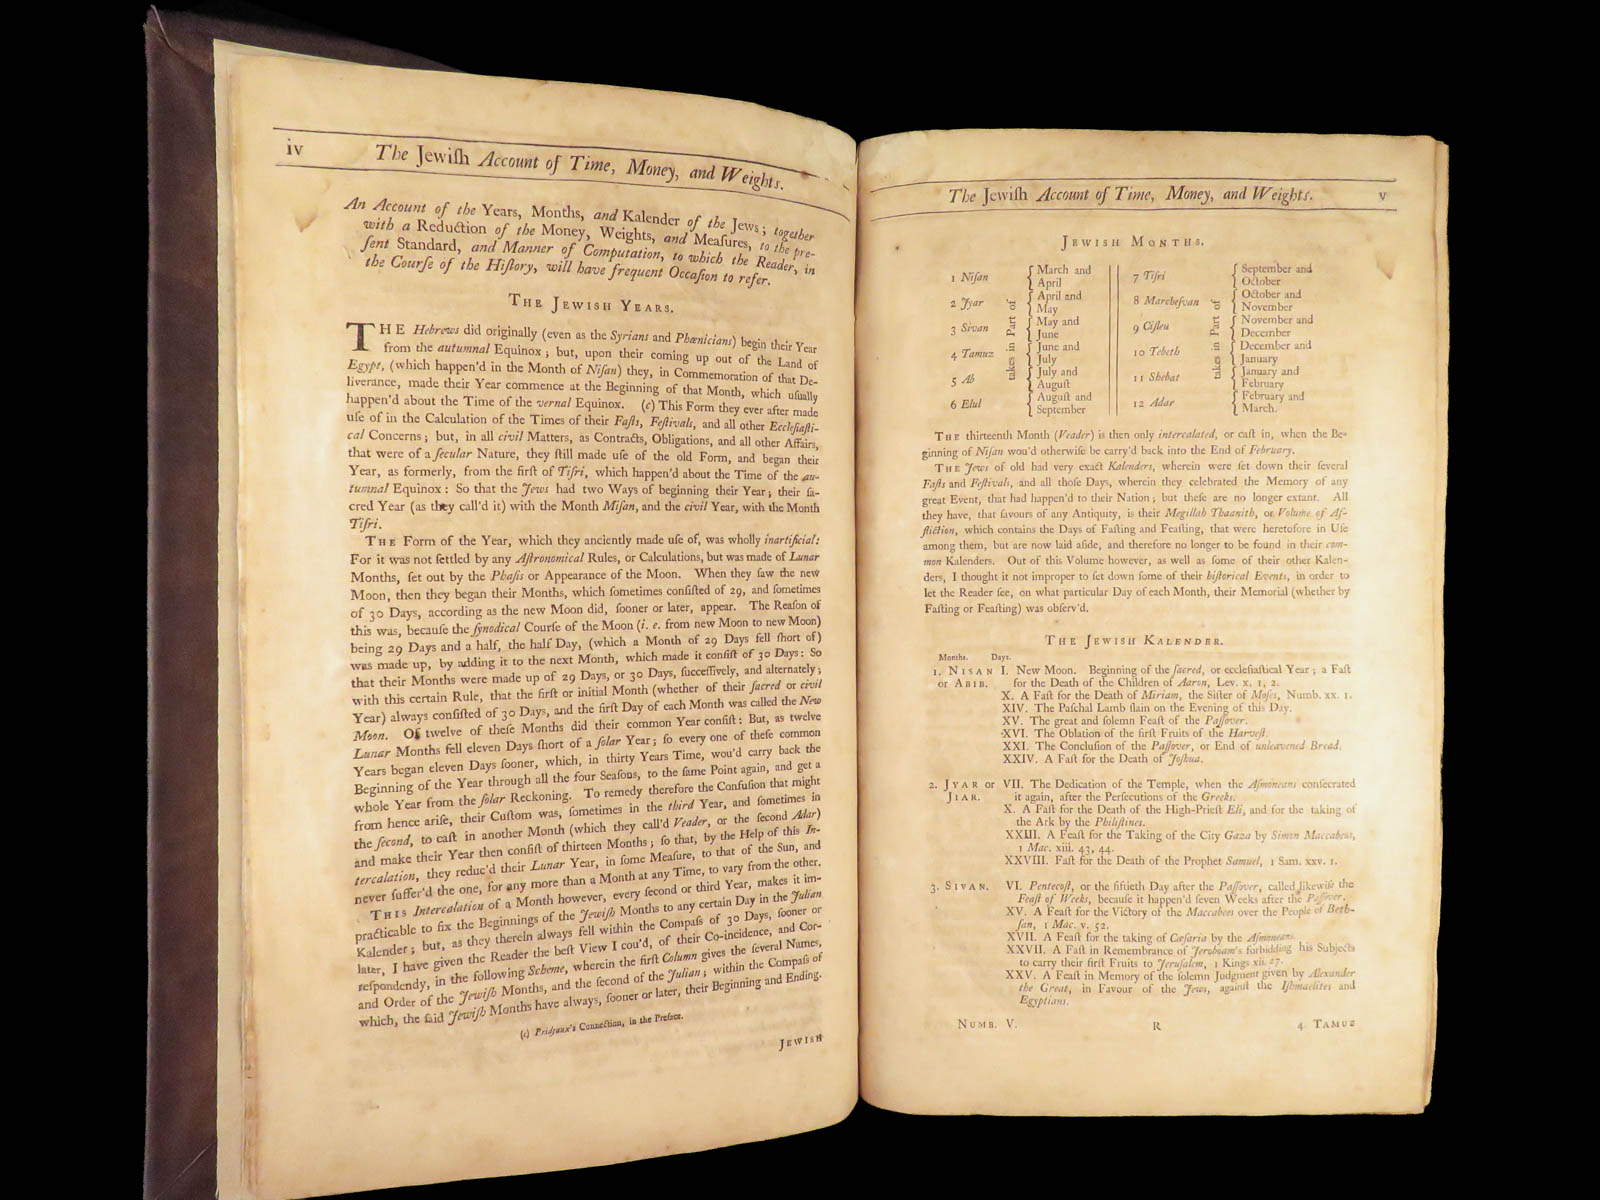 iv The Jewiſh Account of Time, Money, and Weights.
An Account of the Years, Months, and Kalender of the Jews; together
with a Reduction of the Money, Weights, and Meaſures, to the pre-
ſent Standard, and Manner of Computation, to which the Reader, in
the Courſe of the Hiſtory, will have frequent Occaſion to refer.
THE JEWISH YEARS.
THE Hebrews did originally (even as the Syrians and Phœnicians) begin their Year
from the autumnal Equinox; but, upon their coming up out of the Land of
Egypt, (which happen'd in the Month of Niſan) they, in Commemoration of that De-
liverance, made their Year commence at the Beginning of that Month, which uſually
happen'd about the Time of the vernal Equinox. (c) This Form they ever after made
uſe of in the Calculation of the Times of their Faſts, Feſtivals, and all other Eccleſiaſti-
cal Concerns; but, in all civil Matters, as Contracts, Obligations, and all other Affairs,
that were of a ſecular Nature, they ſtill made uſe of the old Form, and began their
Year, as formerly, from the firſt of Tiſri, which happen'd about the Time of the au-
tumnal Equinox: So that the Jews had two Ways of beginning their Year; their ſa-
cred Year (as they call'd it) with the Month Miſan, and the civil Year, with the Month
Tiſri.
THE Form of the Year, which they anciently made uſe of, was wholly inartificial:
For it was not ſettled by any Aſtronomical Rules, or Calculations, but was made of Lunar
Months, ſet out by the Phaſis or Appearance of the Moon. When they ſaw the new
Moon, then they began their Months, which ſometimes conſiſted of 29, and ſometimes
of 30 Days, according as the new Moon did, ſooner or later, appear. The Reaſon of
this was, becauſe the ſynodical Courſe of the Moon (i. e. from new Moon to new Moon)
being 29 Days and a half, the half Day, (which a Month of 29 Days fell ſhort of)
was made up, by adding it to the next Month, which made it conſiſt of 30 Days: So
that their Months were made up of 29 Days, or 30 Days, ſucceſſively, and alternately;
with this certain Rule, that the firſt or initial Month (whether of their ſacred or civil
Year) always conſiſted of 30 Days, and the firſt Day of each Month was called the New
Moon. Of twelve of theſe Months did their common Year conſiſt: But, as twelve
Lunar Months fell eleven Days ſhort of a ſolar Year; ſo every one of theſe common
Years began eleven Days ſooner, which, in thirty Years Time, wou'd carry back the
Beginning of the Year through all the four Seaſons, to the ſame Point again, and get a
whole Year from the ſolar Reckoning. To remedy therefore the Confuſion that might
from hence ariſe, their Cuſtom was, ſometimes in the third Year, and ſometimes in
the ſecond, to caſt in another Month (which they call'd Veader, or the ſecond Adar)
and make their Year then conſiſt of thirteen Months; ſo that, by the Help of this In-
tercalation, they reduc'd their Lunar Year, in ſome Meaſure, to that of the Sun, and
never ſuffer'd the one, for any more than a Month at any Time, to vary from the other.
THIS Intercalation of a Month however, every ſecond or third Year, makes it im-
practicable to fix the Beginnings of the Jewiſh Months to any certain Day in the Julian
Kalender; but, as they therein always fell within the Compaſs of 30 Days, ſooner or
later, I have given the Reader the beſt View I cou'd, of their Co-incidence, and Cor-
reſpondendy, in the following Scheme, wherein the firſt Column gives the ſeveral Names,
and Order of the Jewiſh Months, and the ſecond of the Julian; within the Compaſs of
which, the ſaid Jewiſh Months have always, ſooner or later, their Beginning and Ending.
(c) Prideaux's Connection, in the Preface.
JEWISH
The Jewiſh Account of Time, Money, and Weights. v
JEWISH MONTHS.
1 Niſan March and April
2 Jyar April and May
3 Sivan May and June
4 Tamuz June and July
5 Ab July and Auguſt
6 Elul Auguſt and September
takes in Part of
7 Tiſri September and October
8 Marcheſvan October and November
9 Ciſleu November and December
10 Tebeth December and January
11 Shebat January and February
12 Adar February and March.
takes in Part of
THE thirteenth Month (Veader) is then only intercalated, or caſt in, when the Be-
ginning of Niſan wou'd otherwiſe be carry'd back into the End of February.
THE Jews of old had very exact Kalenders, wherein were ſet down their ſeveral
Faſts and Feſtivals, and all thoſe Days, wherein they celebrated the Memory of any
great Event, that had happen'd to their Nation; but theſe are no longer extant. All
they have, that ſavours of any Antiquity, is their Megillah Thaanith, or Volume of Af-
fliction, which contains the Days of Faſting and Feaſting, that were heretofore in Uſe
among them, but are now laid aſide, and therefore no longer to be found in their com-
mon Kalenders. Out of this Volume however, as well as ſome of their other Kalen-
ders, I thought it not improper to ſet down ſome of their hiſtorical Events, in order to
let the Reader ſee, on what particular Day of each Month, their Memorial (whether by
Faſting or Feaſting) was obſerv'd.
THE JEWISH KALENDER.
Months. Days.
1. NISAN I. New Moon. Beginning of the ſacred, or eccleſiaſtical Year; a Faſt
or ABIB. for the Death of the Children of Aaron, Lev. x. 1, 2.
X. A Faſt for the Death of Miriam, the Siſter of Moſes, Numb. xx. 1.
XIV. The Paſchal Lamb ſlain on the Evening of this Day.
XV. The great and ſolemn Feaſt of the Paſſover.
XVI. The Oblation of the firſt Fruits of the Harveſt.
XXI. The Concluſion of the Paſſover, or End of unleavened Bread.
XXIV. A Faſt for the Death of Joſhua.
2. JYAR or VII. The Dedication of the Temple, when the Aſmoneans conſecrated
JIAR. it again, after the Perſecutions of the Greeks.
X. A Faſt for the Death of the High-Prieſt Eli, and for the taking of
the Ark by the Philiſtines.
XXIII. A Feaſt for the Taking of the City Gaza by Simon Maccabeus,
1 Mac. xiii. 43, 44.
XXVIII. Faſt for the Death of the Prophet Samuel, 1 Sam. xxv. 1.
3. SIVAN. VI. Pentecoſt, or the fiftieth Day after the Paſſover, called likewiſe the
Feaſt of Weeks, becauſe it happen'd ſeven Weeks after the Paſſover.
XV. A Feaſt for the Victory of the Maccabees over the People of Beth-
ſan, 1 Mac. v. 52.
XVII. A Feaſt for the taking of Cæſaria by the Aſmoneans.
XXVII. A Faſt in Remembrance of Jeroboam's forbidding his Subjects
to carry their firſt Fruits to Jeruſalem, 1 Kings xii. 27.
XXV. A Feaſt in Memory of the ſolemn Judgment given by Alexander
the Great, in Favour of the Jews, againſt the Iſhmaelites and
Egyptians.
NUMB. V. R 4 TAMUZ